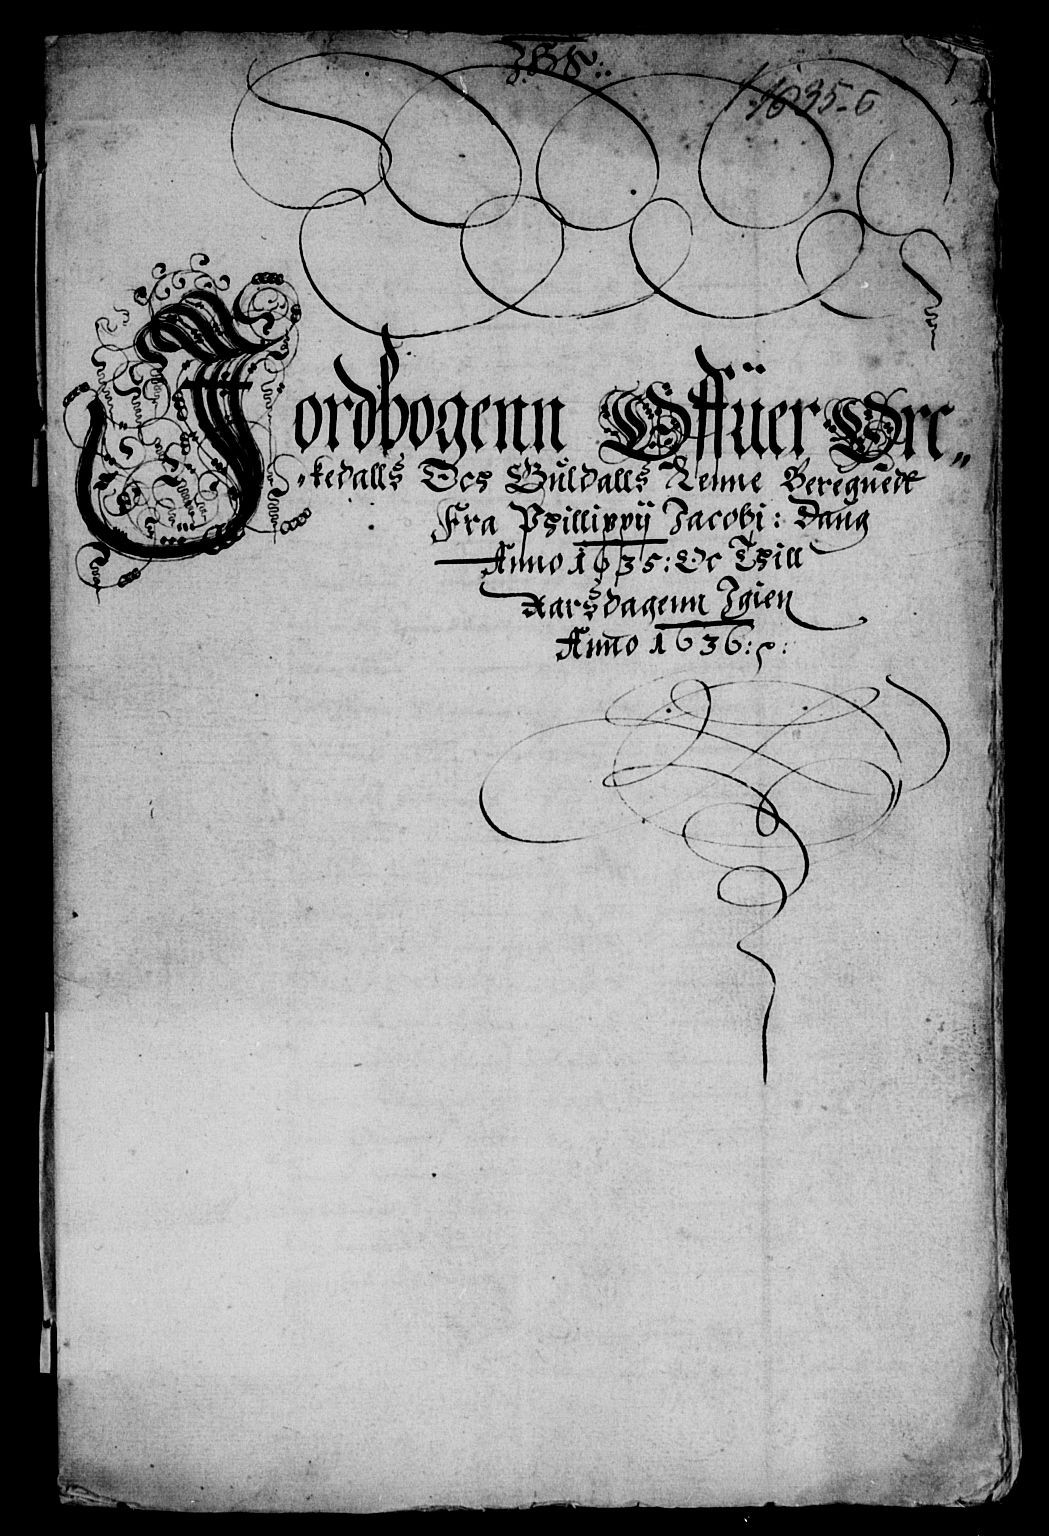 1635-6
Jordbogenn Offuer Orc„
kedalls Ocs Guldalls Renne Beregnedt
Fra Phillippij Jacobi: Daug
Anno 1635: Oc Thill
Aarsdagenn Igien
Anno 1636: